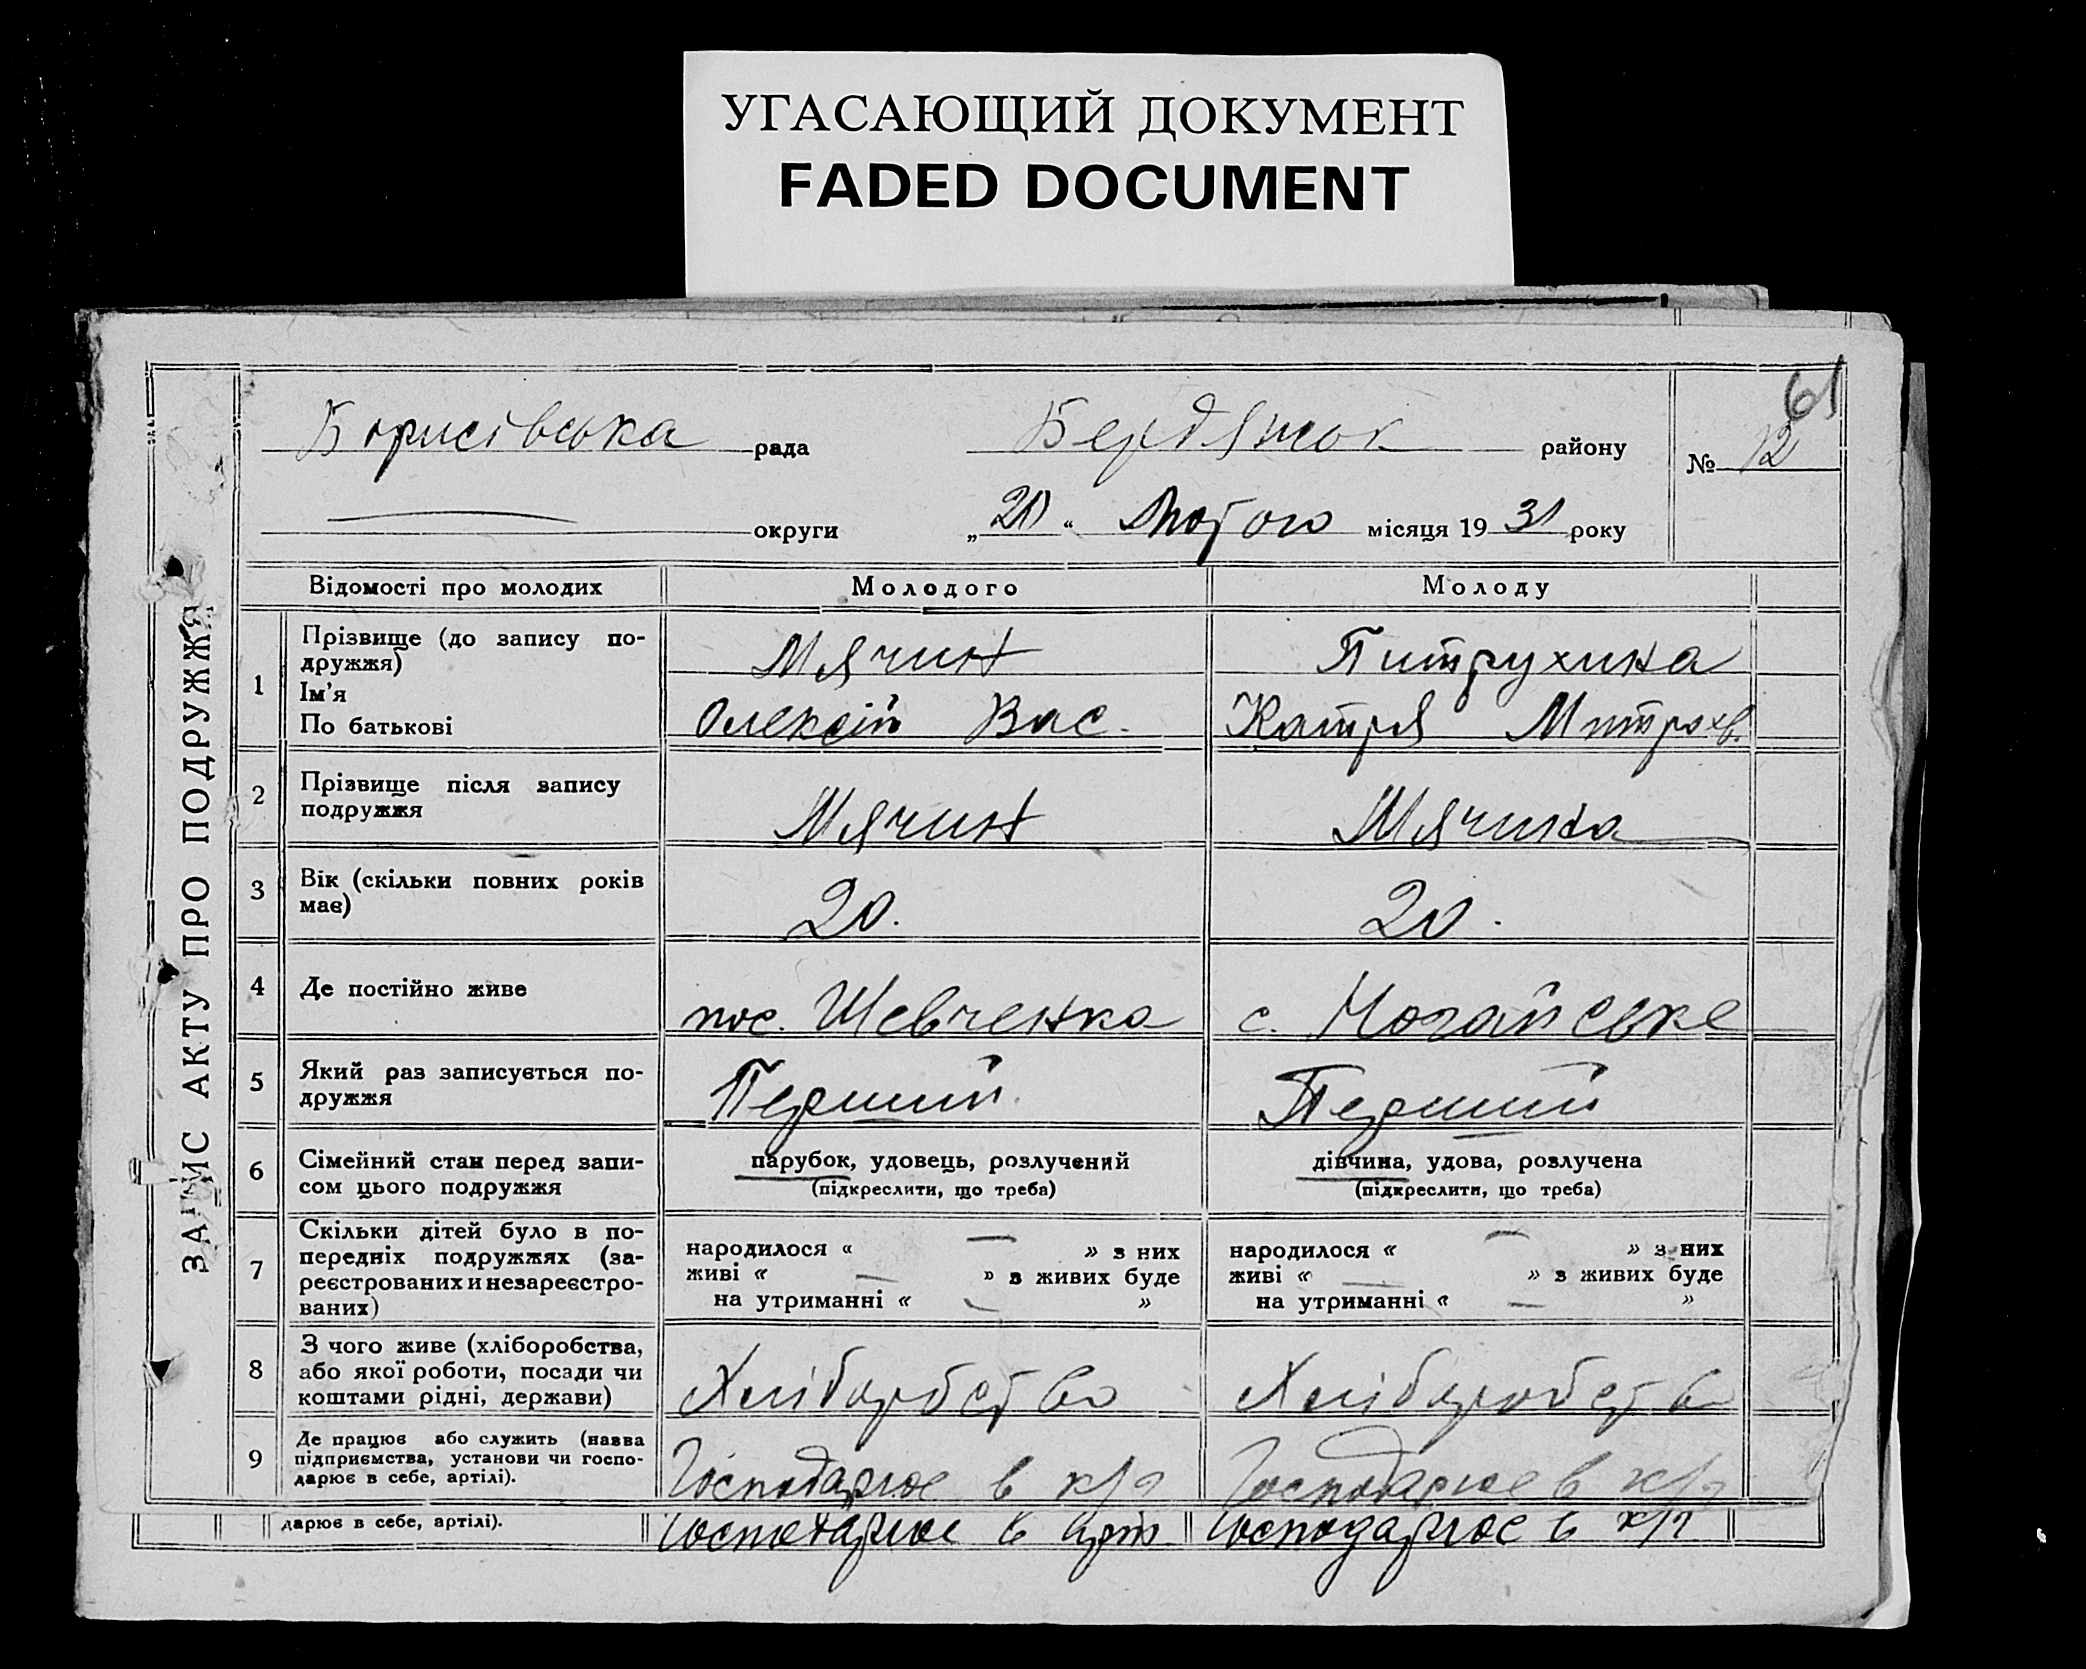 УГАСАЮЩИЙ ДОКУМЕНТ
FADED DOCUMENT
61
Борисівська рада Бердянськ району № 12
округи „20“ Лютого місяця 1931 року
ЗАПИС АКТУ ПРО ПОДРУЖЖЯ
Відомості про молодих Молодого Молоду
1 Прізвище (до запису по-
дружжя) Мячин Питрухина
Ім'я
По батькові Олексій Вас. Катря Митрохв.
2 Прізвище після запису
подружжя Мячин Мячина
3 Вік (скільки повних років
має) 20. 20.
4 Де постійно живе пос. Шевченка с. Ногайське
5 Який раз записується по-
дружжя Перший Перший
6 Сімейний стан перед запи-
сом цього подружжя
парубок, удовець, розлучений
(підкреслити, що треба)
дівчина, удова, розлучена
(підкреслити, що треба)
7 Скільки дітей було в по-
передніх подружжях (за-
реєстрованих и незареєстро-
ваних)
народилося « — » з них
живі « — » з живих буде
на утриманні « — »
народилося « — » з них
живі « — » з живих буде
на утриманні « — »
8 З чого живе (хліборобства,
або якої роботи, посади чи
коштами рідні, держави)
Хліборбство Хліборобство
9 Де працює або служить (назва
підприємства, установи чи госпо-
дарює в себе, артілі).
Господарює в к/г Господарює в к/г
дарює в себе, артілі). Господарює в арт. Господарює в к/г